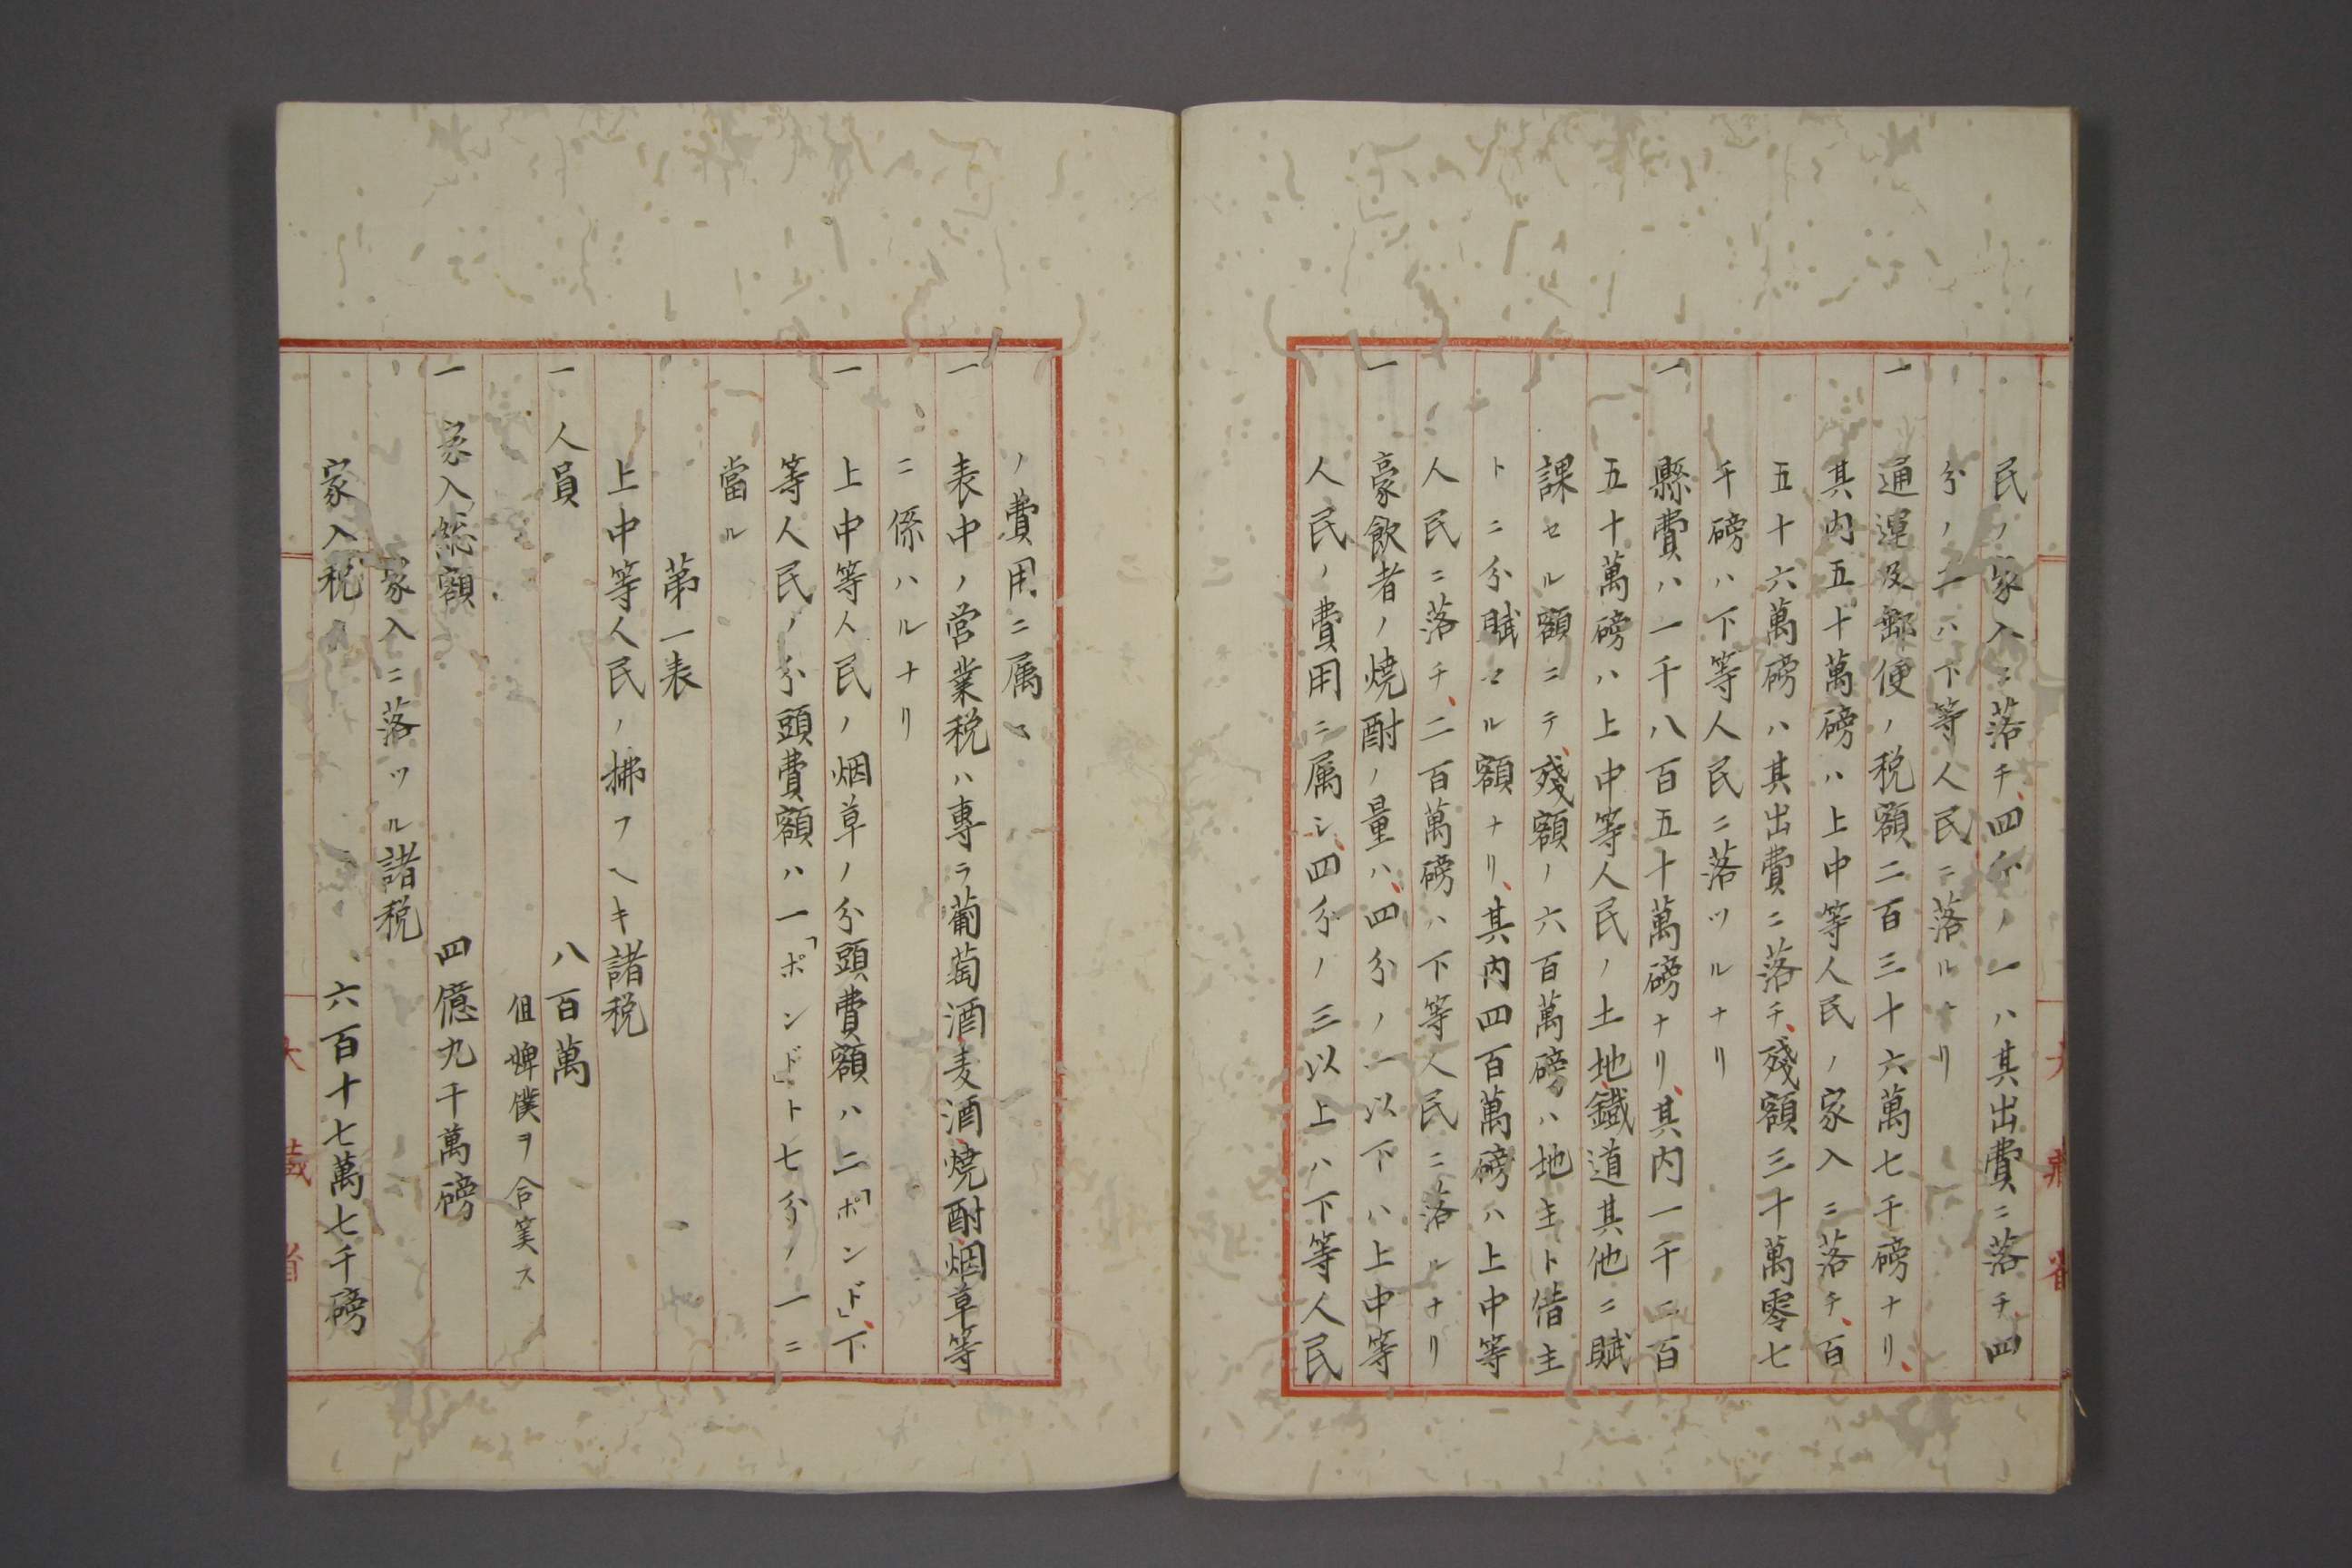 民ノ家入ニ落チ、四分ノ一ハ其出費ニ落チ、四
分ノ二ハ下等人民ニ落ルナリ
一通運及郵便ノ税額二百三十六萬七千磅ナリ、
其内五十萬磅ハ上中等人民ノ家入ニ落チ、百
五十六萬磅ハ其出費ニ落チ、殘額三十萬零七
千磅ハ下等人民ニ落ツルナリ
一縣費ハ一千八百五十萬磅ナリ、其内一千二百
五十萬磅ハ上中等人民ノ土地、鐵道其他ニ賦
課セル額ニテ、殘額ノ六百萬磅ハ地主ト借主
トニ分賦セル額ナリ、其内四百萬磅ハ上中等
人民ニ落チ、二百萬磅ハ下等人民ニ落ルナリ
一豪飲者ノ焼酎ノ量ハ、四分ノ一以下ハ上中等
人民ノ費用ニ属シ、四分ノ三以上ハ下等人民
ノ費用ニ属ス
一表中ノ営業税ハ専ラ葡萄酒麦酒、焼酎、烟草等
ニ係ハルナリ
一上中等人民ノ烟草ノ分頭費額ハ二「ポンド」、下
等人民ノ分頭費額ハ一「ポンド」ト七分ノ一ニ
當ル
第一表
上中等人民ノ拂フヘキ諸税
一人員 八百萬
但婢僕ヲ合算ス
一家入総額 四億九千萬磅
家入ニ落ツル諸税
家入税 六百十七萬七千磅
大藏省
大藏省